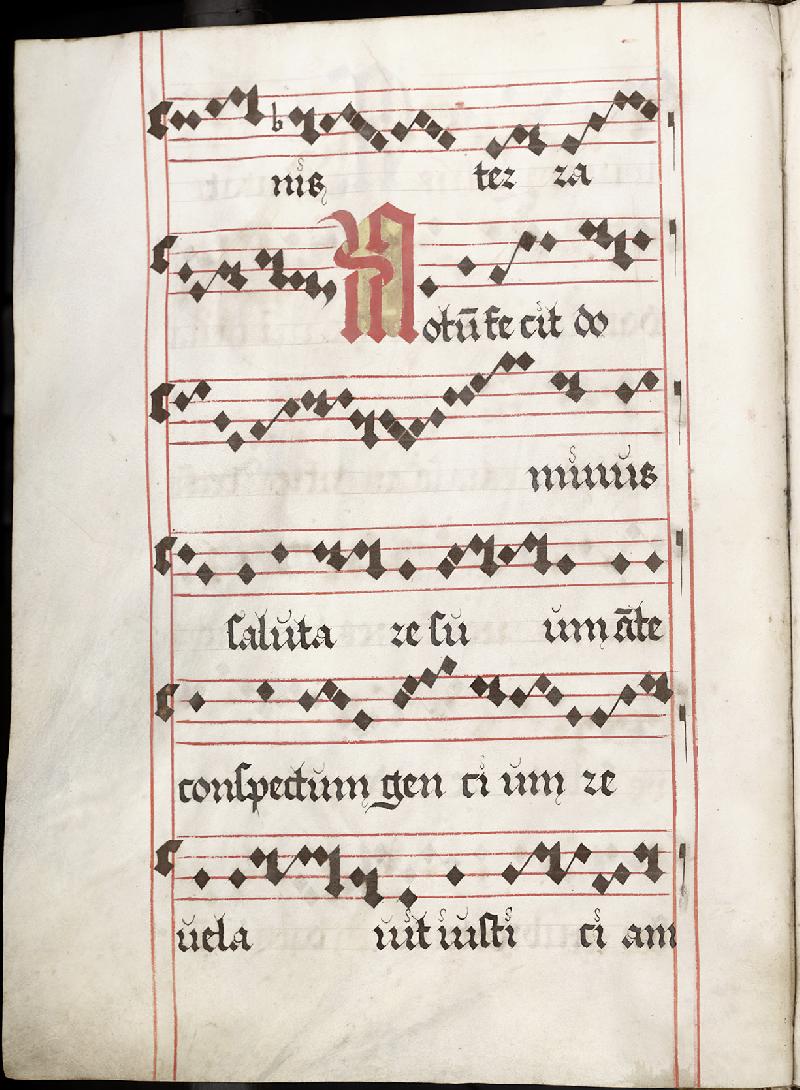 nis ter ra
Notū fe cit do
minus
saluta re su um āte
conspectum gen ci um re
uela uit iusti ci am